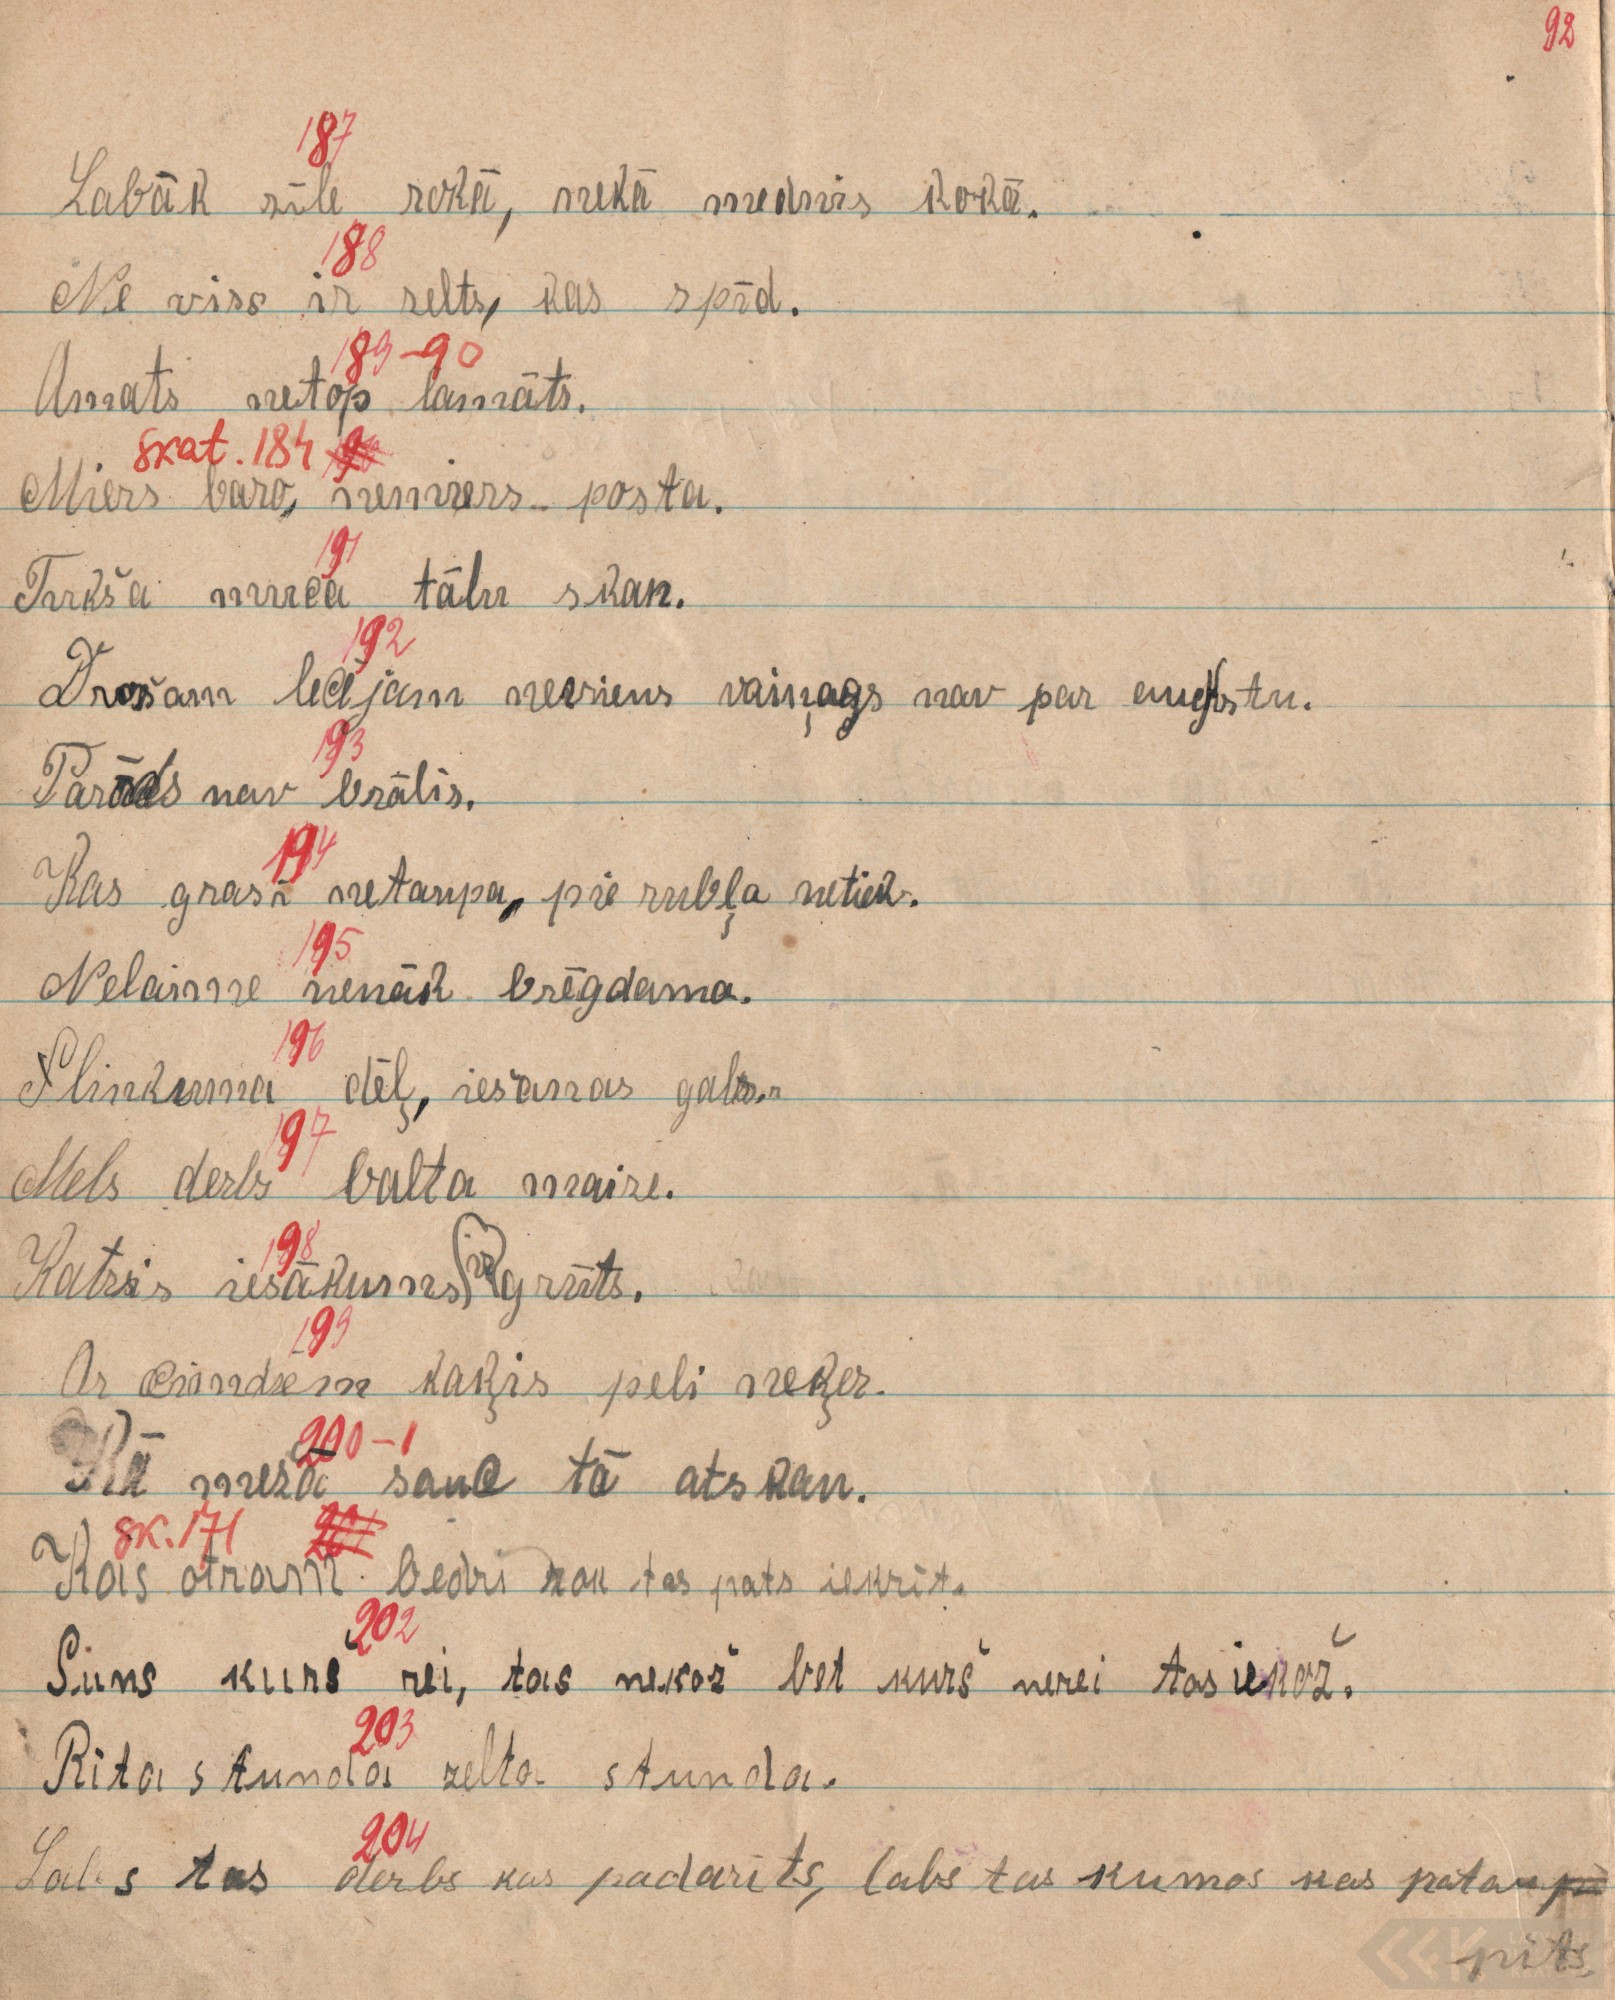 92
187
Labāk zīle rokā, nekā mednis kokā.
188
Ne viss ir zelts, kas spīd.
189-90
Amats netop lamāts.
skat. 184
Miers baro, nemiers posta.
191
Tukša muca tālu skan.
192
Drošam lecējam neviens vaiņags nav par augstu.
193
Parāds nav brālis.
194
Kas grasi netaupa, pie rubļa netiek.
195
Nelaime nenāk brēgdama.
196
Slinkuma dēļ, iešanas gals.
197
Mels derbs balta maize.
198
Katris iesākums ir grūts.
199
Ar cimdiem kaķis peli neķer.
200-1
Kā mežā sauc tā atskan.
sk. 171 201
Kas otram bedri rok tas pats iekrīt.
202
Suns kurš rei, tas nekož bet kurš nerei tas iekož.
203
Rīta stunda zelta stunda.
204
Labs tas derbs kas padarīts, labs tas kumos kas pataupī
pīts